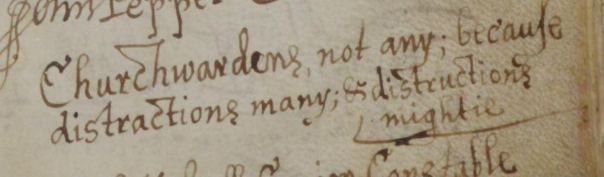 John Pepper
Churchwardens, not any; because
distractions many; & distructions
mightie
Constable